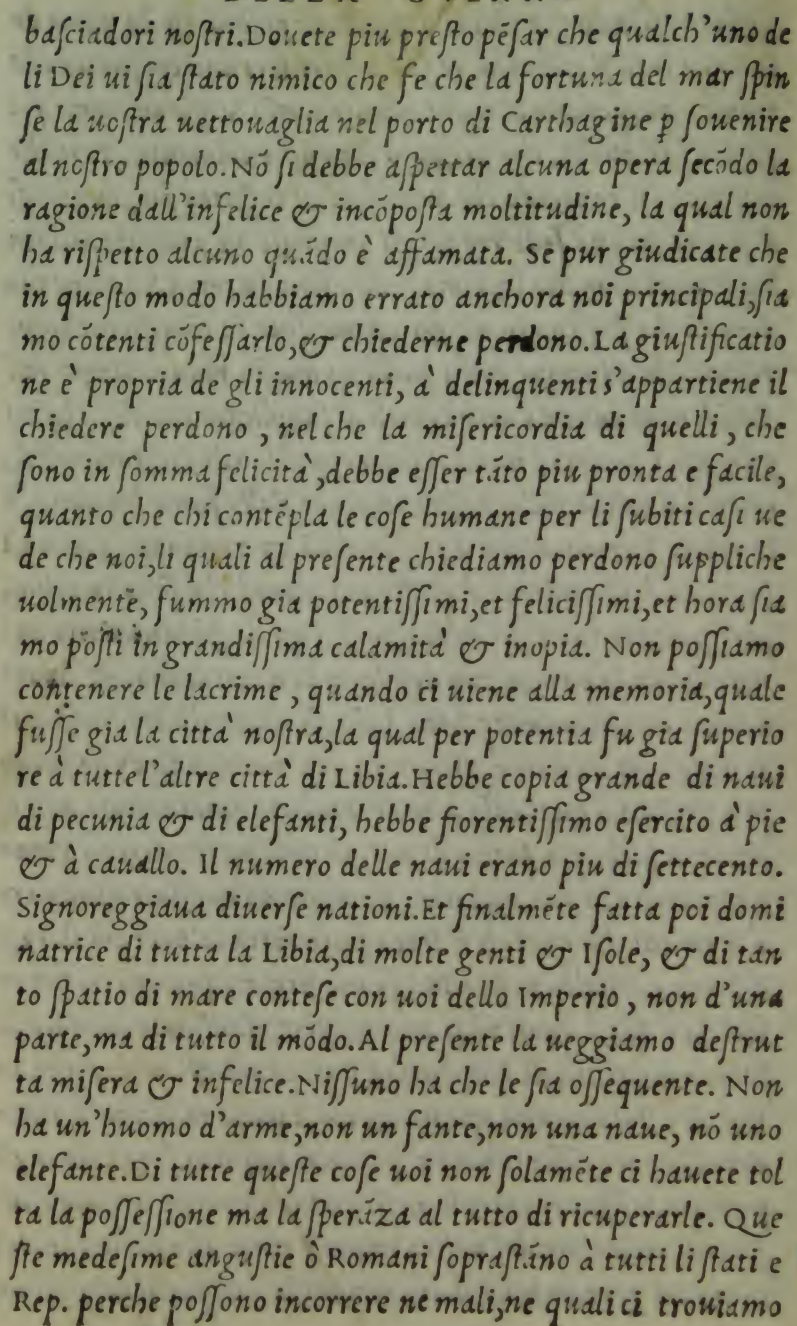 basciadori nostri.Douete piu presto pēsar che qualch'uno de
li Dei ui sia stato nimico che fe che la fortuna del mar spin
se la uostra uettouaglia nel porto di Carthagine p souenire
al nostro popolo.Nō si debbe aspettar alcuna opera secōdo la
ragione dall'infelice & incōposta moltitudine, la qual non
ha rispetto alcuno quādo è affamata. Se pur giudicate che
in questo modo habbiamo errato anchora noi principali,sia
mo cōtenti cōfessarlo,& chiederne perdono.La giustificatio
ne è propria de gli innocenti, à delinquenti s'appartiene il
chiedere perdono , nel che la misericordia di quelli , che
sono in somma felicità,debbe esser tāto piu pronta e facile,
quanto che chi contēpla le cose humane per li subiti casi ue
de che noi,li quali al presente chiediamo perdono suppliche
uolmente, fummo gia potentissimi,et felicissimi,et hora sia
mo posti in grandissima calamità & inopia. Non possiamo
contenere le lacrime , quando ci uiene alla memoria,quale
fusse gia la città nostra,la qual per potentia fu gia superio
re à tutte l'altre città di Libia.Hebbe copia grande di naui
di pecunia & di elefanti, hebbe fiorentissimo esercito à pie
& à cauallo. Il numero delle naui erano piu di settecento.
Signoreggiaua diuerse nationi.Et finalmēte fatta poi domi
natrice di tutta la Libia,di molte genti & Isole, & di tan
to spatio di mare contese con uoi dello Imperio , non d'una
parte,ma di tutto il mōdo.Al presente la ueggiamo destrut
ta misera & infelice.Nissuno ha che le sia ossequente. Non
ha un'huomo d'arme,non un fante,non una naue, nō uno
elefante.Di tutte queste cose uoi non solamēte ci hauete tol
ta la possessione ma la sperāza al tutto di ricuperarle. Que
ste medesime angustie ò Romani soprastāno à tutti li stati e
Rep. perche possono incorrere ne mali,ne quali ci trouiamo